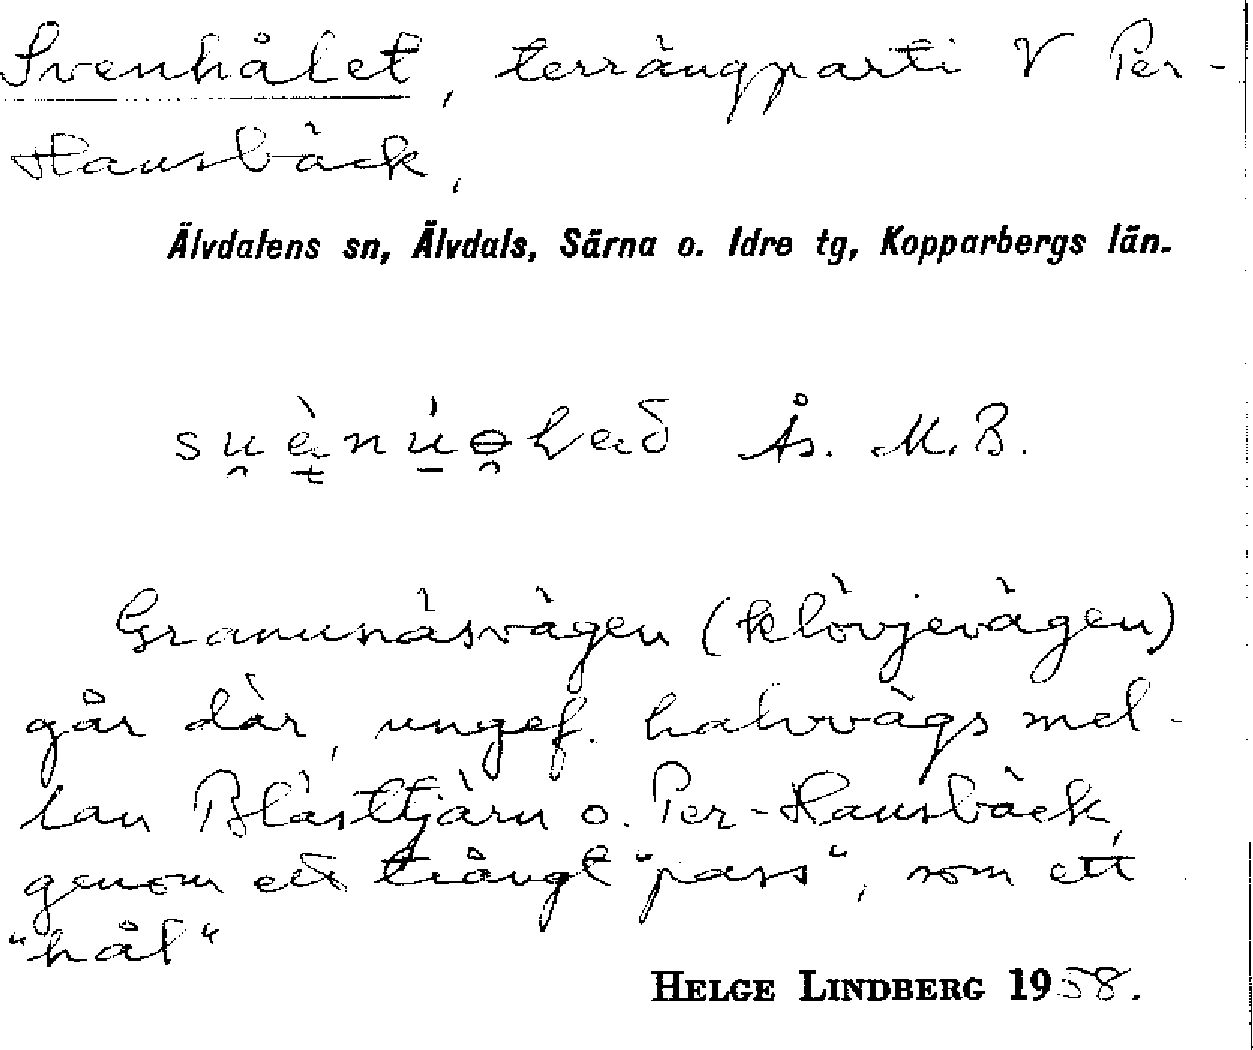 Svenhålet, terrängparti V Per-
Hansbäck,
Älvdalens sn, Älvdals, Särna o. Idre tg, Kopparbergs län.
Ås. M. B.
Granunäsvägen (klövjevägen)
går där, ungef. halvvägs mel-
lan Blästtjärn o. Per-Hansbäck,
genom ett trångt "pass", som ett
"hål"
HELGE LINDBERG 1958.